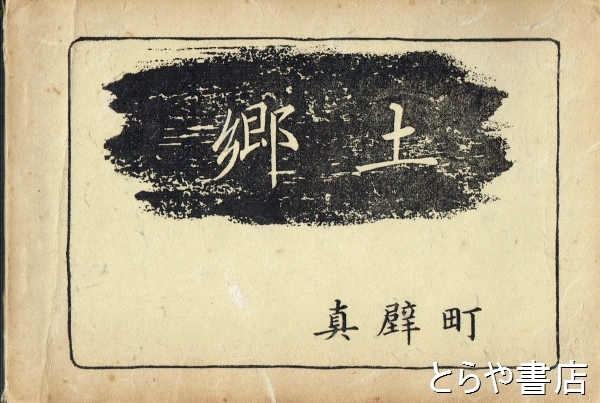 郷土
真壁町
とらや書店